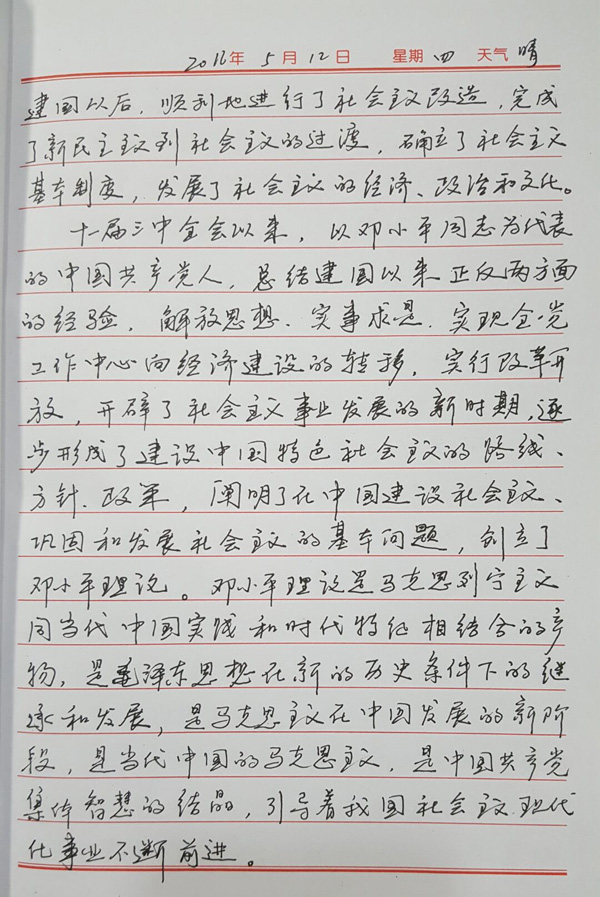 2016年 5月12日 星期 四 天气 晴
建国以后，顺利地进行了社会主义改造，完成
了新民主主义到社会主义的过渡，确立了社会主义
基本制度，发展了社会主义的经济、政治和文化。
十一届三中全会以来，以邓小平同志为代表
的中国共产党人，总结建国以来正反两方面
的经验，解放思想、实事求是，实现全党
工作中心向经济建设的转移，实行改革开
放，开辟了社会主义事业发展的新时期，逐
步形成了建设中国特色社会主义的路线、
方针、政策，阐明了在中国建设社会主义、
巩固和发展社会主义的基本问题，创立了
邓小平理论。邓小平理论是马克思列宁主义
同当代中国实践和时代特征相结合的产
物，是毛泽东思想在新的历史条件下的继
承和发展，是马克思主义在中国发展的新阶
段，是当代中国的马克思主义，是中国共产党
集体智慧的结晶，引导着我国社会主义现代
化事业不断前进。